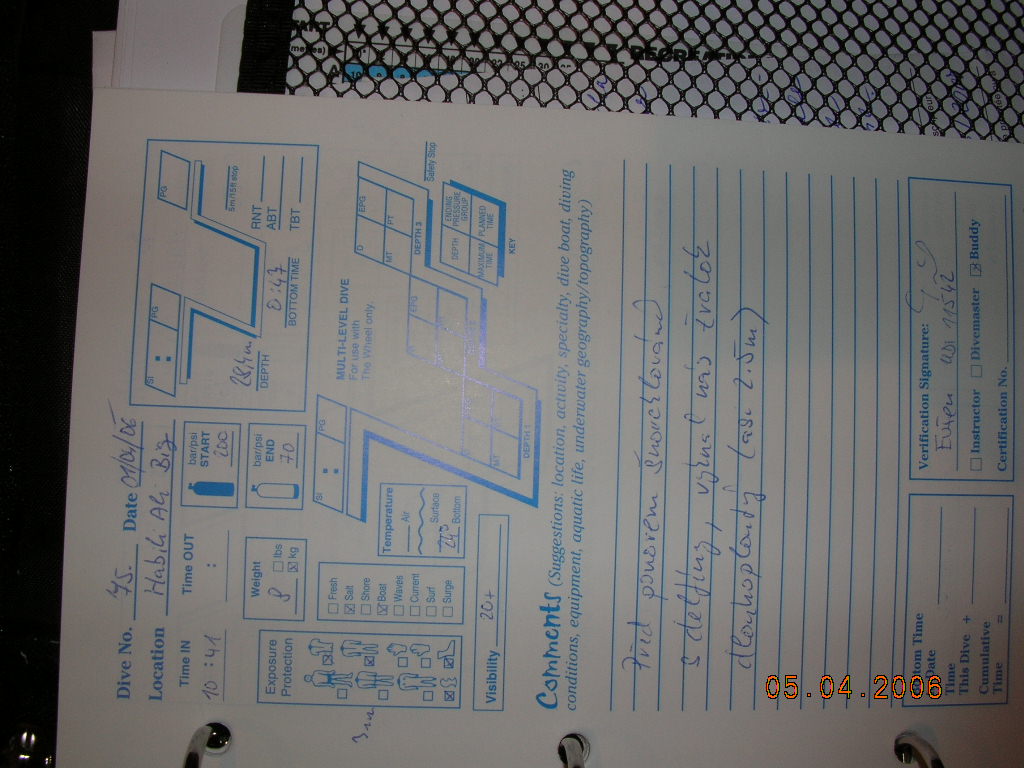 START
RECREA
(metres)
Dive No. 75. Date 01/04/06
Location Habili Ali Big
Time IN Time OUT
10:41 :
bar/psi START 200
bar/psi END 70
SI
PG
PG
28,4m
DEPTH
0:47
BOTTOM TIME
5m/15ft stop
RNT
ABT
TBT
Exposure Protection
3mm
Weight
8 lbs kg
Fresh
Salt
Shore
Boat
Waves
Current
Surf
Surge
Temperature
Air
Surface
24° Bottom
Visibility 20+
MULTI-LEVEL DIVE
For use with
The Wheel only.
SI
PG
PG
MT
DEPTH 1
D
EPG
MT
PT
DEPTH 3
Safety Stop
DEPTH
ENDING PRESSURE GROUP
MAXIMUM TIME
PLANNED TIME
KEY
Comments (Suggestions: location, activity, specialty, dive boat, diving
conditions, equipment, aquatic life, underwater geography/topography)
Před ponorem šnorchlování
s delfíny,
žralok
dlouhoploutvý (asi 2.5m)
Date
This Dive +
Cumulative
Time =
Verification Signature:
11542
Instructor Divemaster Buddy
Certification No.
05.04.2006